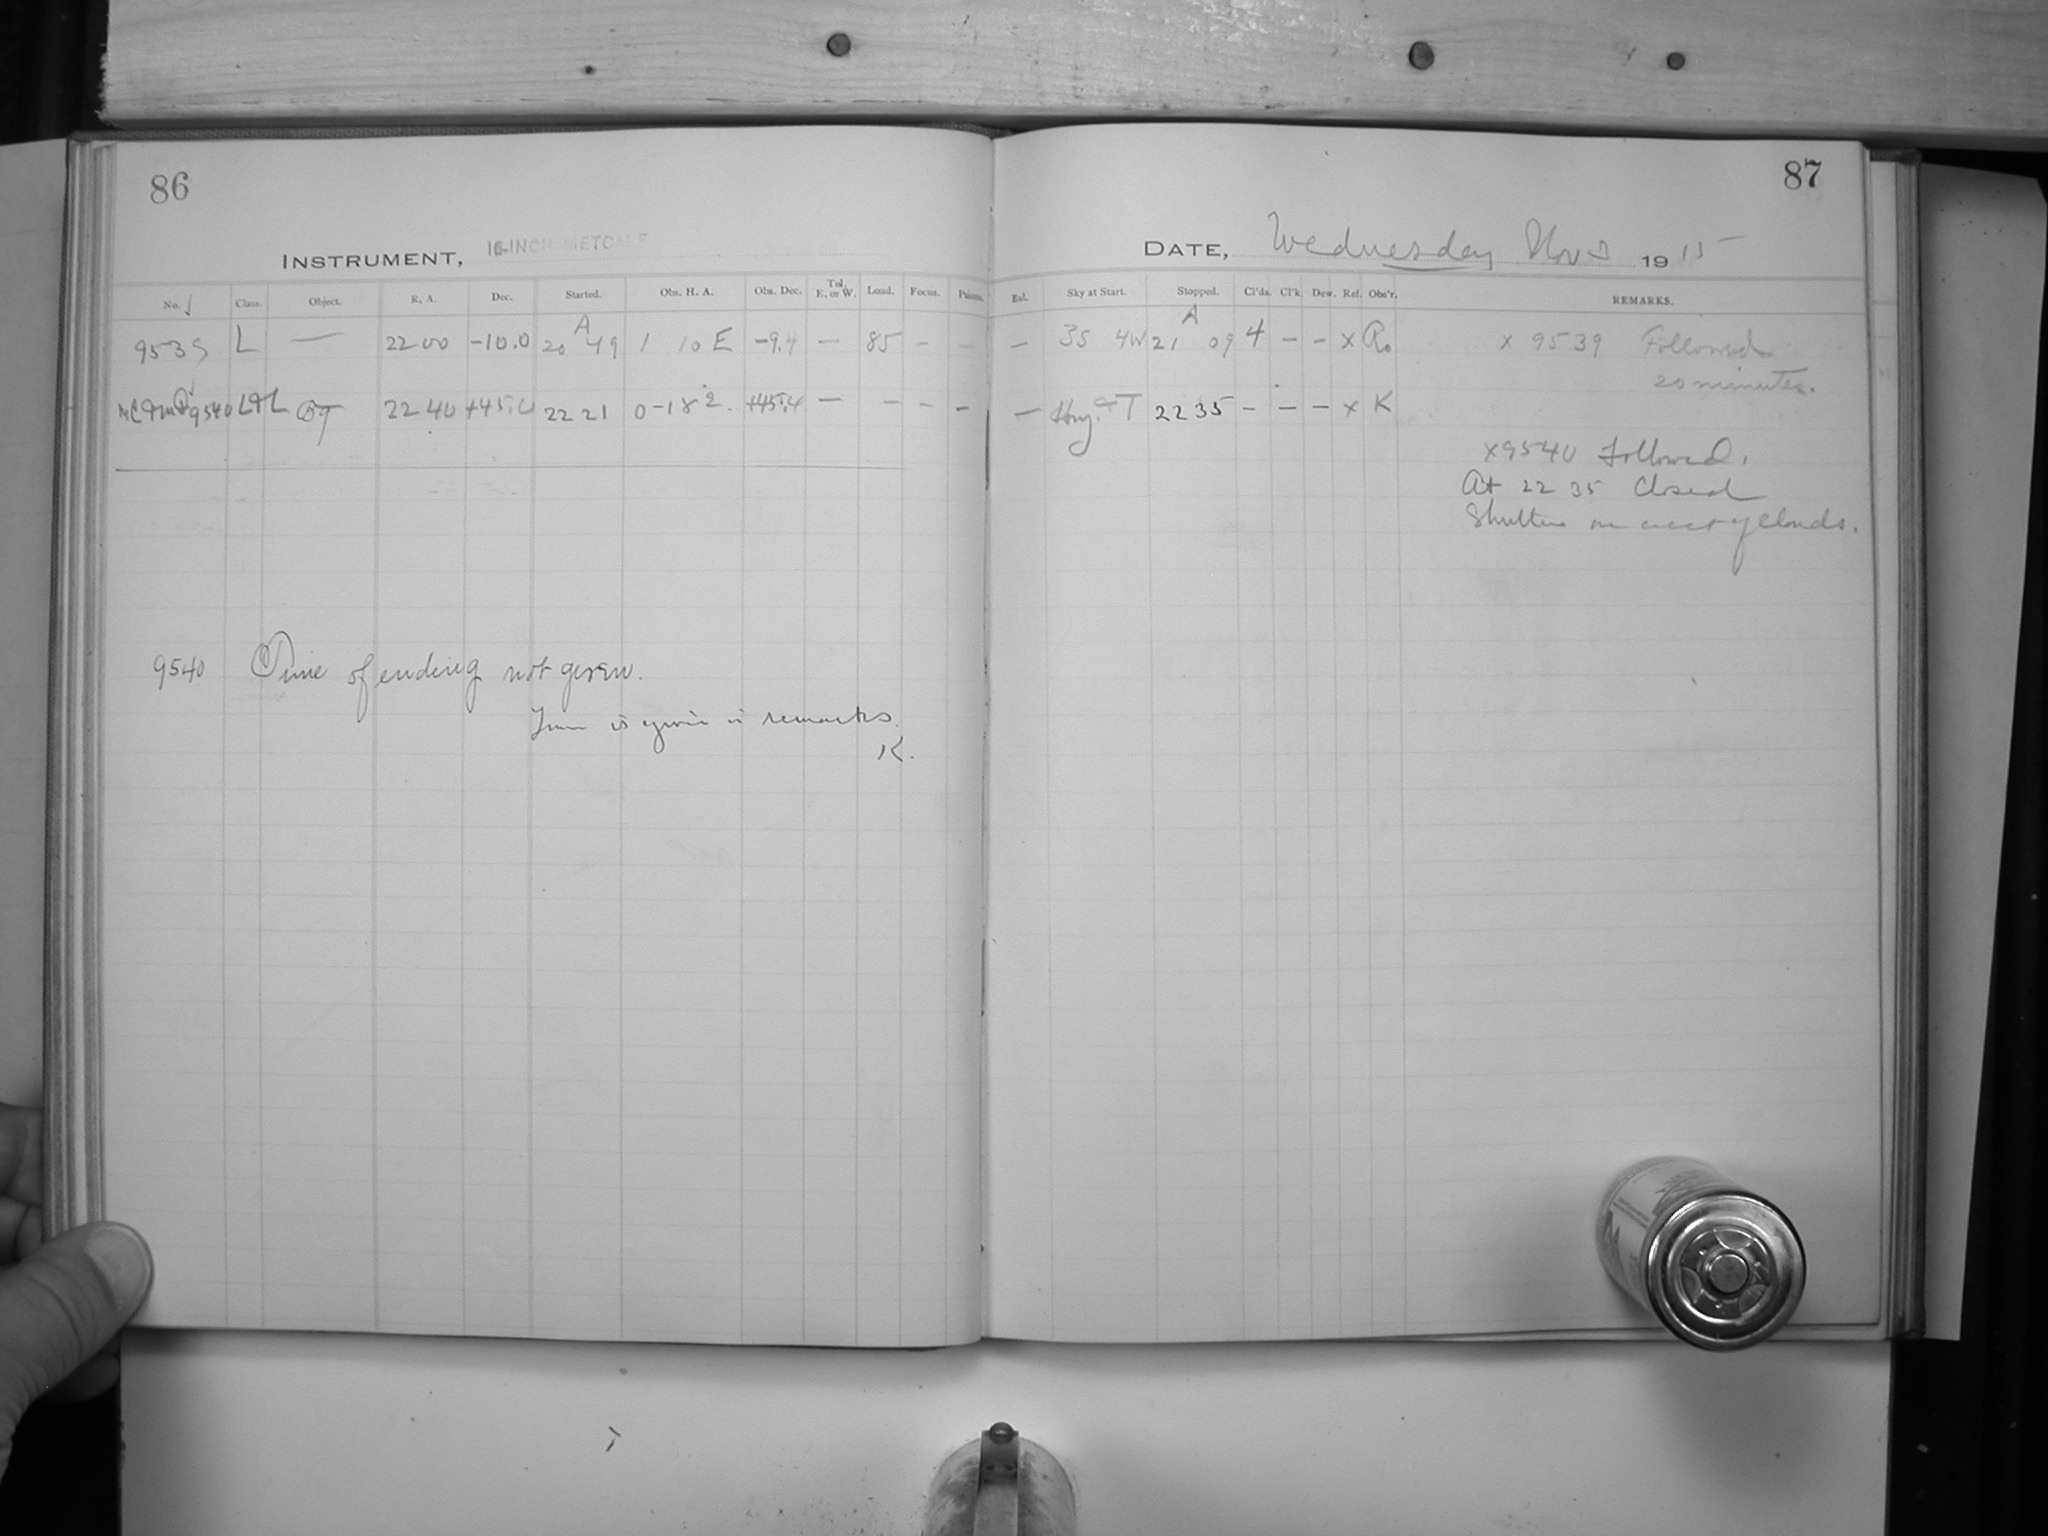 86
INSTRUMENT, 16-INCH METCALF
No. Class. Object. R. A. Dec. Started. Obs. H. A. Obs. Dec. Tel. E. or W. Load. Focus.
9539 L — 22 00 -10.0 20 A 49 1 10 E -9.4 — 85 - -
9540 22 40 +45.0 22 21 0-18 2. +45.4 — - - -
9540 Time of ending not given.
Time is given in remarks.
K.
87
DATE, Wednesday Nov 3 1915
Sky at Start. Stopped. Cl'ds. Cl'k. Dew. Ref. Obs'r. REMARKS.
— 3S 4W 21 A 09 4 - - x Ro x 9539 Followed
20 minutes.
— T 22 35 - - - x K
x9540 Followed.
At 22 35 Closed
Shutters on acct of clouds.